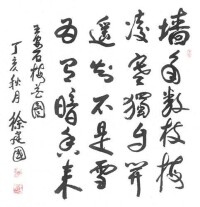 墙角数枝梅
凌寒獨自開
遥知不是雪
为有暗香来
王安石梅花
丁亥秋月 徐建國